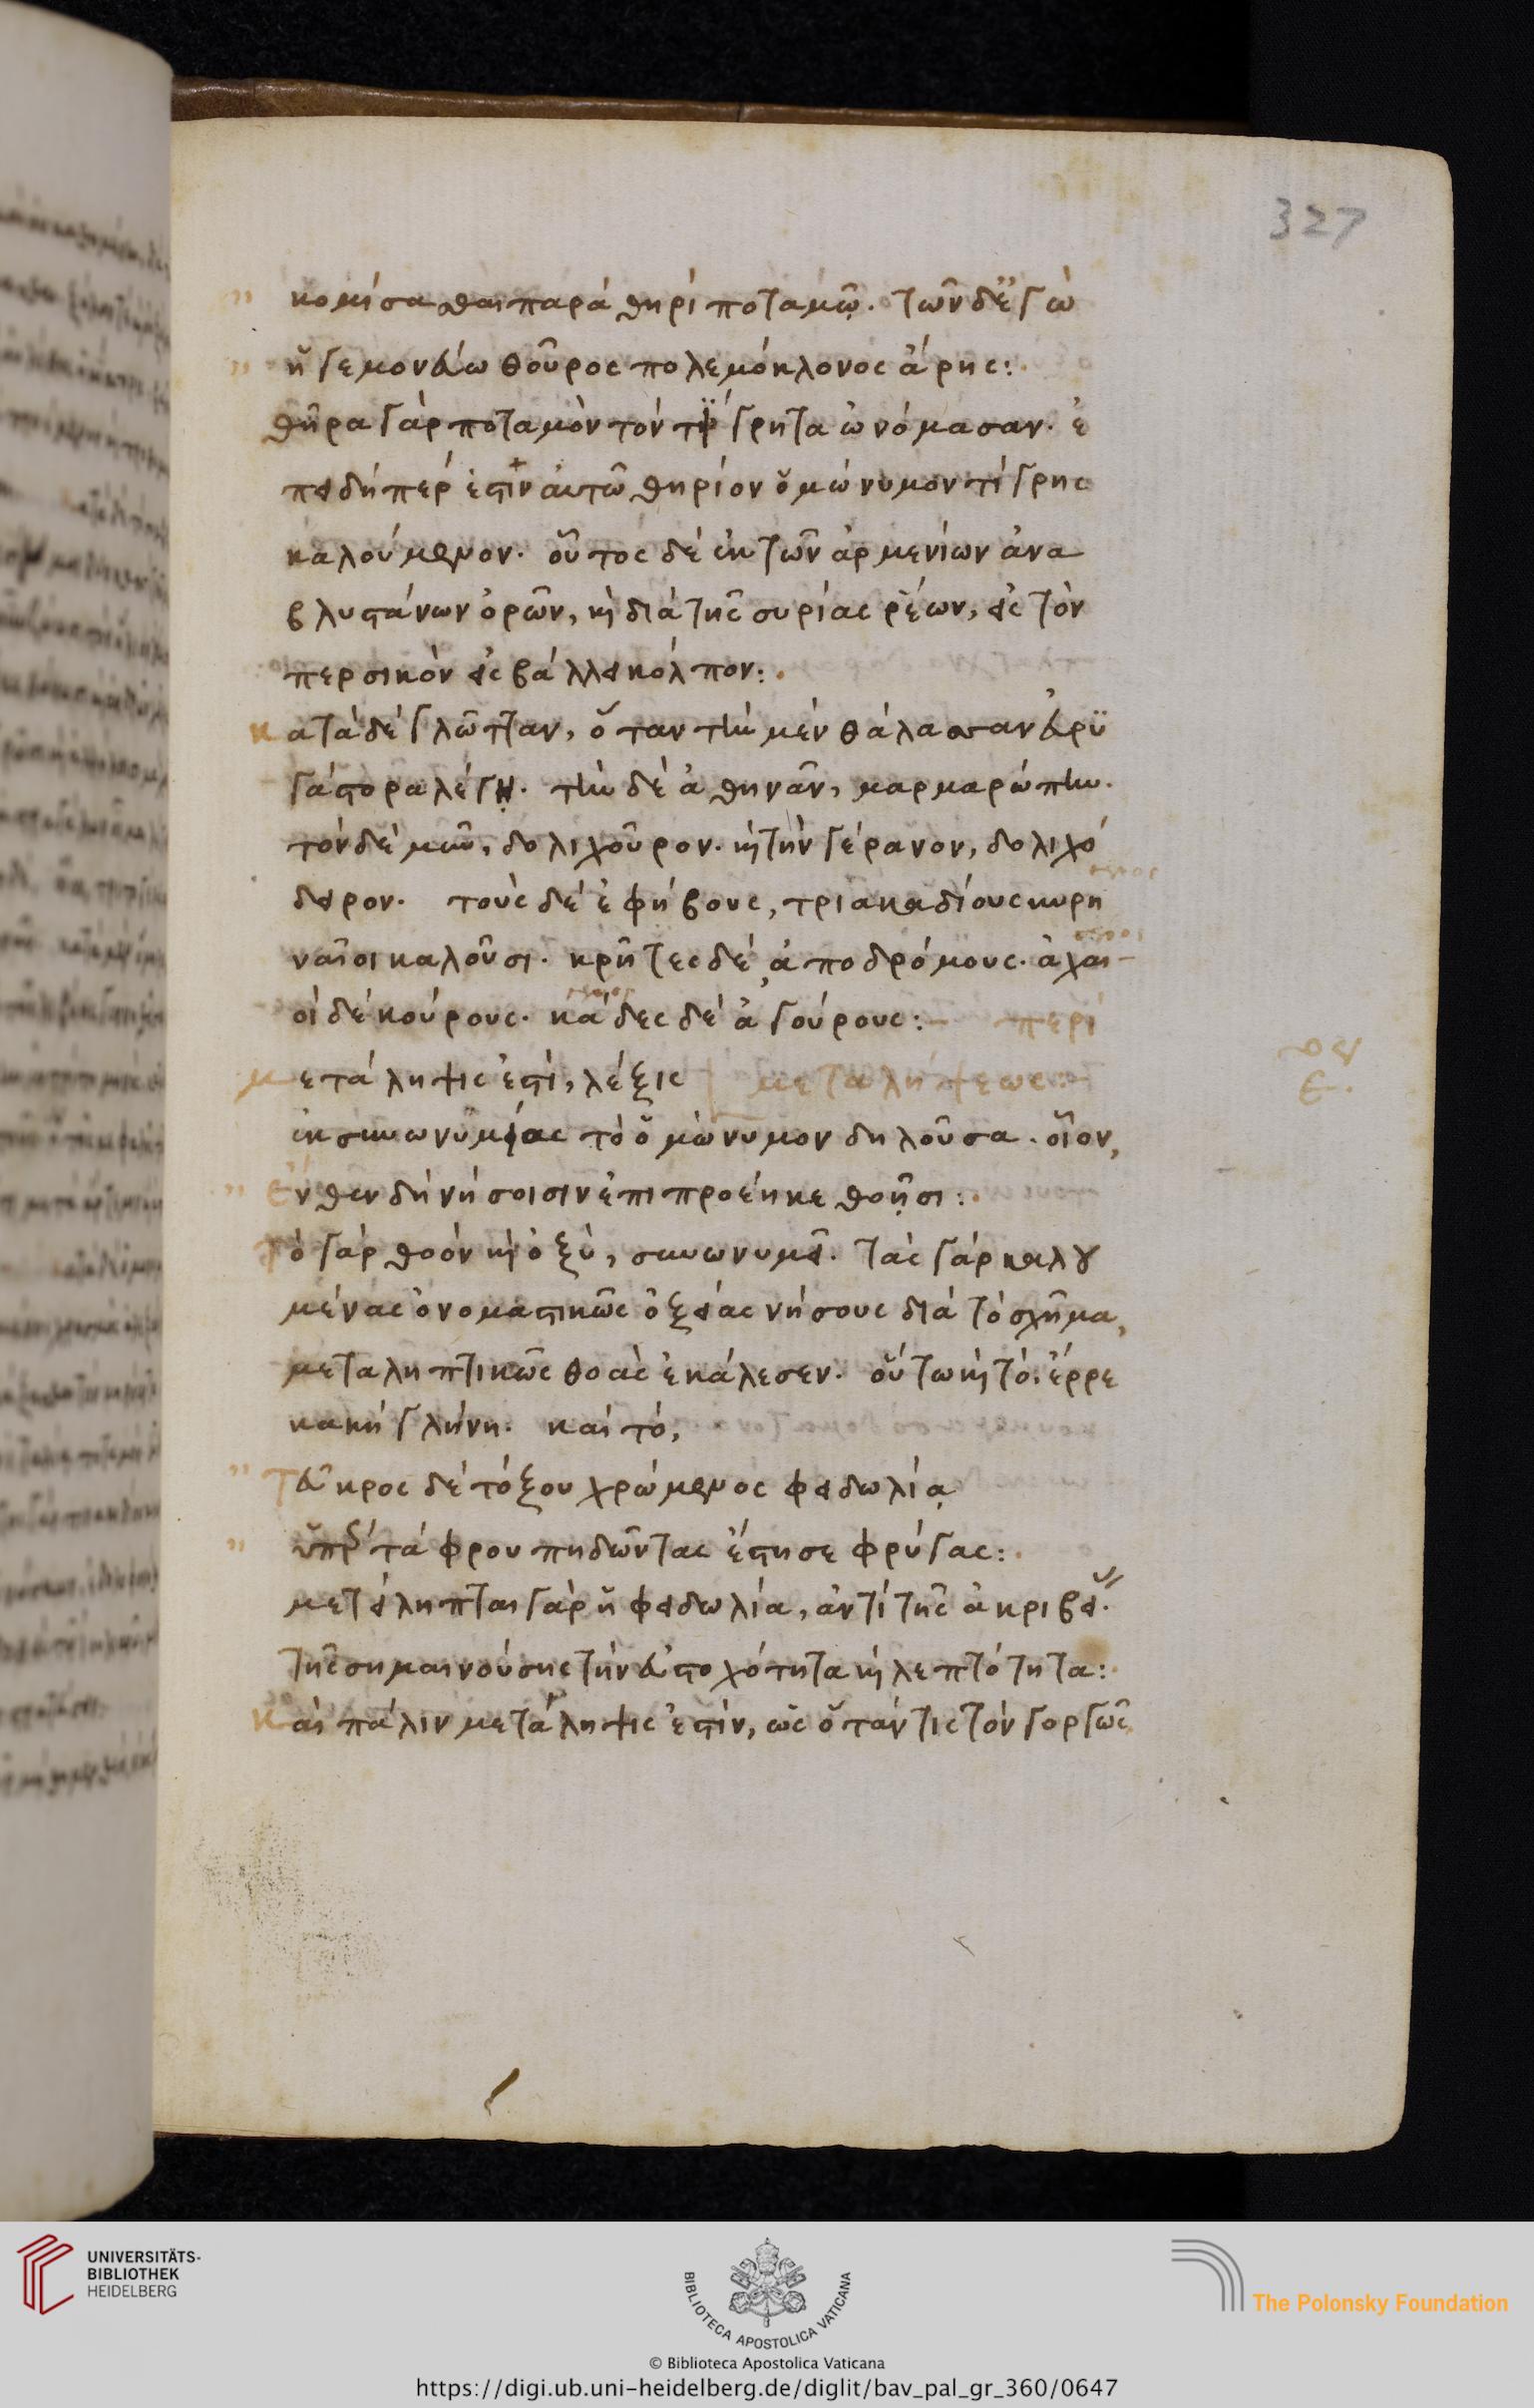 327
κομίσασθαι παρὰ θηρὶ ποταμῷ. τῶν δ' ἐγὼ
ἡγεμονεύω θοῦρος πολεμόκλονος ἄρης:
θῆρα γὰρ ποταμὸν τὸν τίγρητα ὠνόμασαν. ἐ
πειδήπερ ἐστὶν αὐτῶ θηρίον ὁμώνυμον τίγρης
καλούμενον. οὗτος δὲ ἐκ τῶν ἀρμενίων ἀνα
βλυστάνων ὀρῶν, κὴ διὰ τῆς συρίας ῥέων, εἰς τὸν
περσικὸν εἰσβάλλει κόλπον:
κατὰ δὲ γλῶτταν, ὅταν τὴν μὲν θάλασσαν εὐρυ
γάστορα λέγῃ. τὴν δὲ ἀθηνᾶν, μαρμαρώπην.
τὸν δὲ μῦν, δολιχοῦρον. κὴ τὴν γέρανον, δολιχό
δειρον. τοὺς δὲ ἐφήβους, τριακαδίους κυρη
ναῖοι καλοῦσι. κρῆτες δὲ, ἀποδρόμους. ἀχαι
οὶ δὲ κούρους. κᾶδες δὲ ἀγούρους: περὶ
μετάληψίς ἐστι, λέξις μεταλήψεως:
ἐκ συνωνυμίας τὸ ὁμώνυμον δηλοῦσα. οἷον,
Ἔνθεν δὴ νήσοισιν ἐπιπροέηκε θοῇσι:
τὸ γὰρ θοὸν κὴ ὀξὺ, συνωνυμεῖ. τὰς γὰρ καλου
μένας ὀνομαστικῶς ὀξείας νήσους διὰ τὸ σχῆμα,
μεταληπτικῶς θοὰς ἐκάλεσεν. οὕτω κὴ τὸ. ἔρρε
κακὴ γλήνη. καὶ τὸ,
Τεῦκρος δὲ τόξου χρώμενος φειδωλίᾳ
ὑπὲρ τάφρου πηδῶντας ἔστησε φρύγας:
μετείληπται γὰρ ἡ φειδωλία, ἀντὶ τῆς ἀκριβεί.
τῆς σημαινούσης τὴν εὐστοχότητα κὴ λεπτότητα:
καὶ πάλιν μετάληψίς ἐστιν, ὡς ὅταν τις τὸν γοργῶς
UNIVERSITÄTS-
BIBLIOTHEK
HEIDELBERG
BIBLIOTECA APOSTOLICA VATICANA
The Polonsky Foundation
© Biblioteca Apostolica Vaticana
https://digi.ub.uni-heidelberg.de/diglit/bav_pal_gr_360/0647